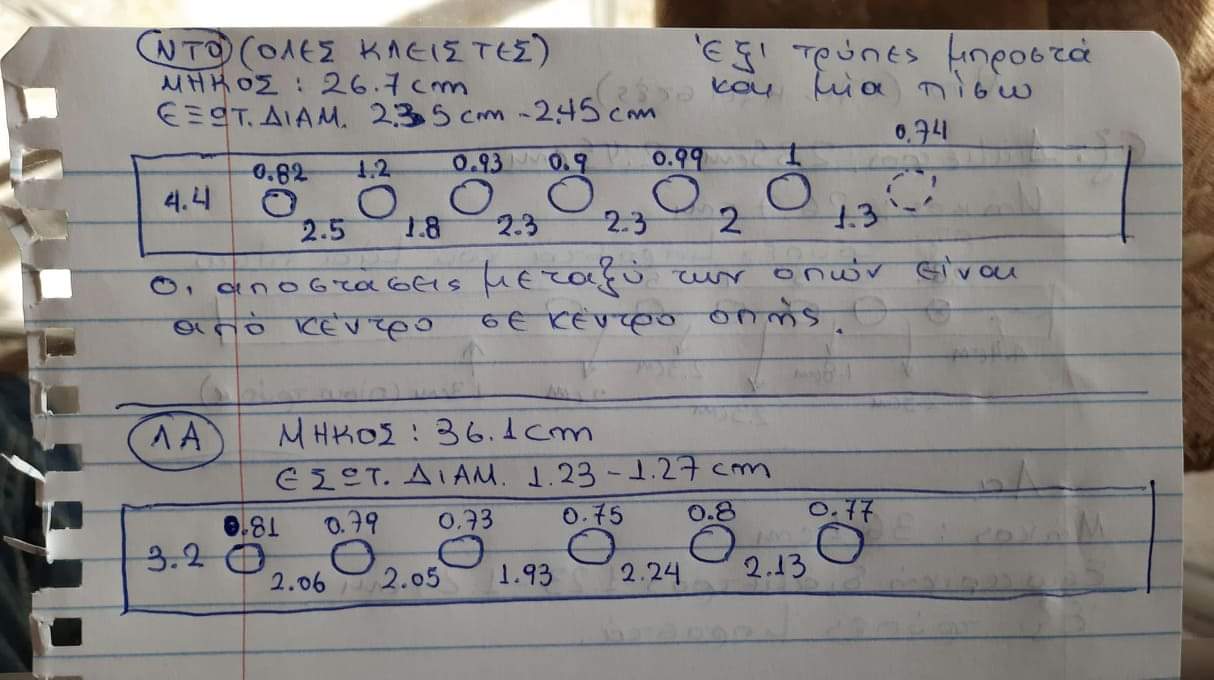 ΝΤΟ (ΟΛΕΣ ΚΛΕΙΣΤΕΣ)
Έξι τρύπες μπροστά
και μία πίσω
ΜΗΚΟΣ: 26.7 cm
ΕΞΩΤ. ΔΙΑΜ. 2.35 cm - 2.45 cm
0.82 1.2 0.93 0.9 0.99 1 0.74
4.4
2.5 1.8 2.3 2.3 2 1.3
Οι αποστάσεις μεταξύ των οπών είναι
από κέντρο σε κέντρο οπής.
ΛΑ
ΜΗΚΟΣ: 36.1 cm
ΕΣΩΤ. ΔΙΑΜ. 1.23 - 1.27 cm
0.81 0.79 0.73 0.75 0.8 0.77
3.2
2.06 2.05 1.93 2.24 2.13